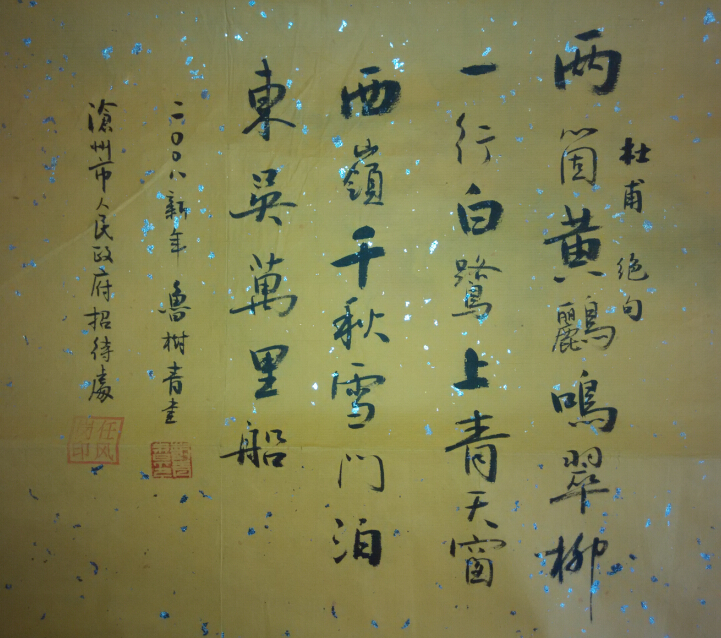 杜甫 绝句
两箇黄鸝鳴翠柳
一行白鷺上青天窗
西嶺千秋雪门泊
東吳萬里船
二〇〇八新年 魯树青書
滄州市人民政府招待處